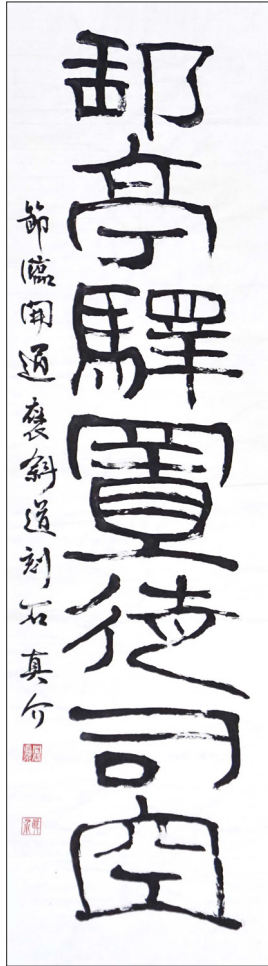 郵亭驛置徒司空
節臨開通褒斜道刻石 真介